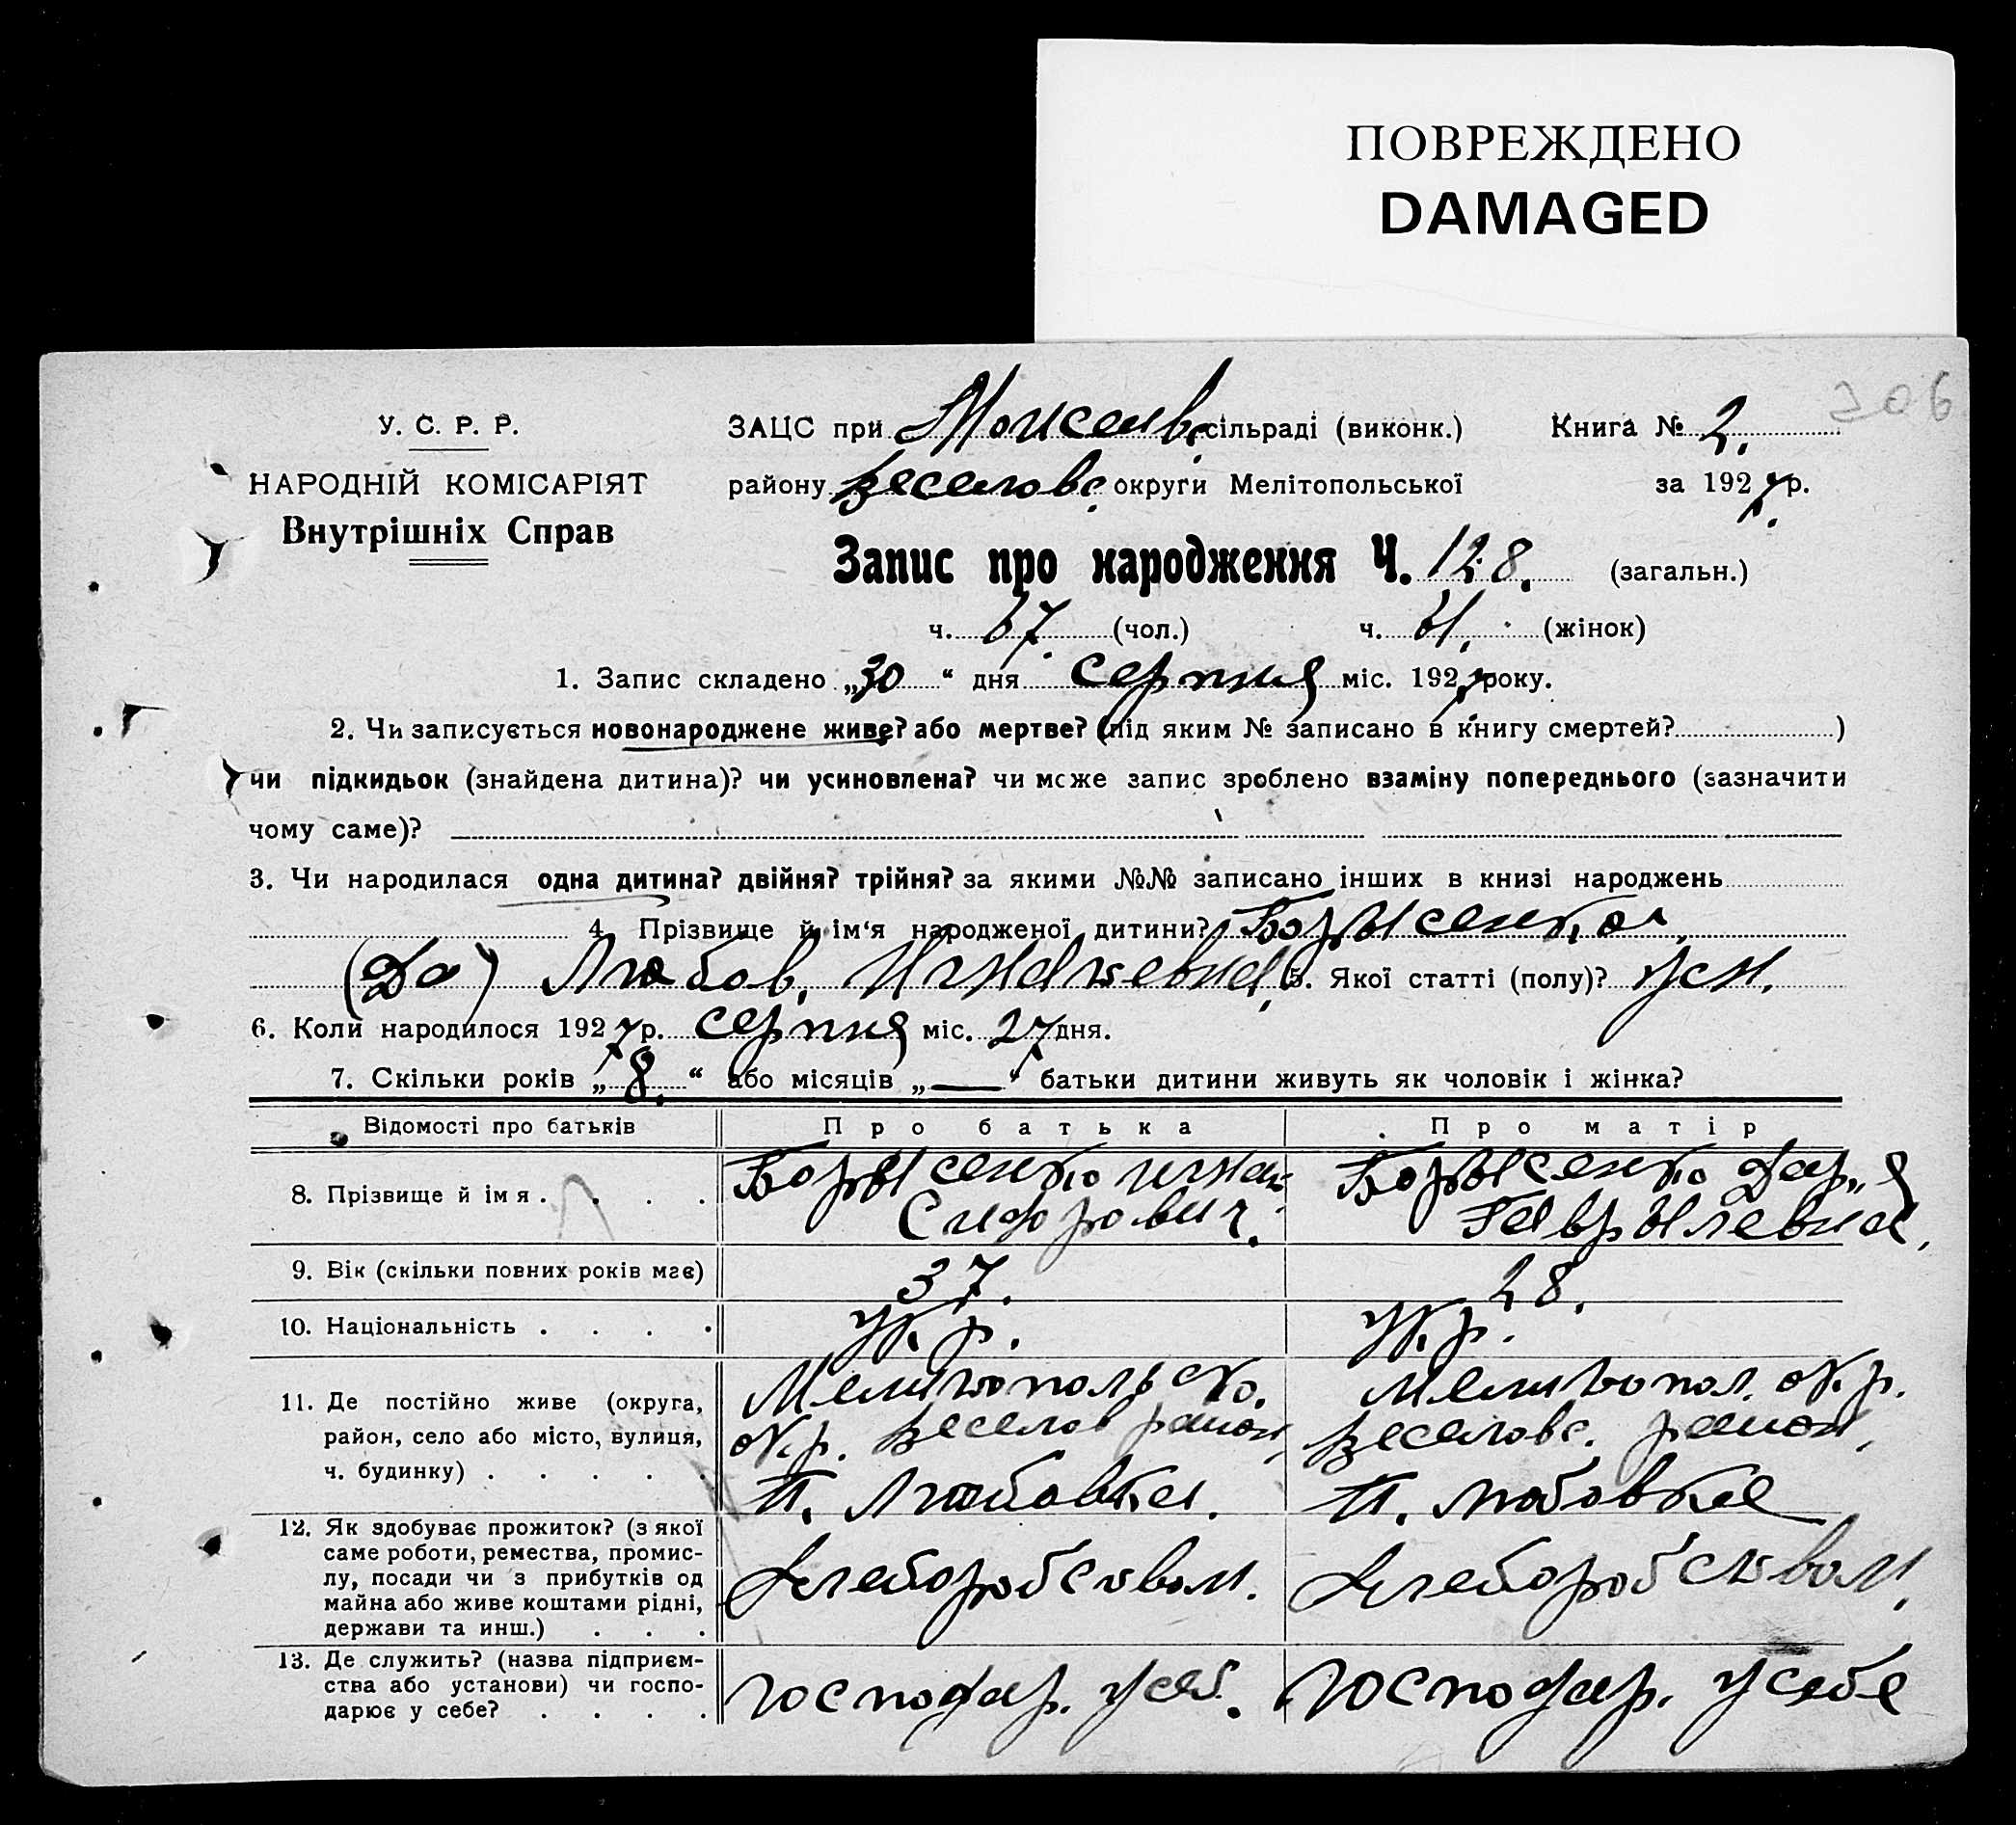 ПОВРЕЖДЕНО
DAMAGED
306
У. С. Р. Р.
НАРОДНІЙ КОМІСАРІЯТ
Внутрішніх Справ
ЗАЦС при Моисеивс. сільраді (виконк.) Книга № 2.
району Веселовс. округи Мелітопольської за 1927 р.
Запис про народження Ч. 128. (загальн.)
ч. 67. (чол.) ч. 61. (жінок)
1. Запис складено „30“ дня серпня міс. 1927 року.
2. Чи записується новонароджене живе? або мертве? (під яким № записано в книгу смертей? )
чи підкидьок (знайдена дитина)? чи усиновлена? чи може запис зроблено взаміну попереднього (зазначити
чому саме)?
3. Чи народилася одна дитина? двійня? трійня? за якими №№ записано інших в книзі народжень
4. Прізвище й ім‘я народженої дитини? Борысенко,
(Да) Любов, Игнатьевна, 5. Якої статті (полу)? жен.
6. Коли народилося 1927 р. серпня міс. 27 дня.
7. Скільки років „8.“ або місяців „—“ батьки дитини живуть як чоловік і жінка?
Відомості про батьків Про батька Про матір
8. Прізвище й імя . . . . Борысенко Игнат Борысенко Дарья
Сидорович. Гаврылевна,
9. Вік (скільки повних років має) 37. 28.
10. Національність . . . . Укр. Укр.
11. Де постійно живе (округа, Мелитопольско. Мелитопол. окр.
район, село або місто, вулиця, окр. Веселов район, Веселовс. район,
ч. будинку) . . . . . П. Любовка. П. Любовка
12. Як здобуває прожиток? (з якої
саме роботи, ремества, промис-
лу, посади чи з прибутків од Хлеборобством. Хлеборобством,
майна або живе коштами рідні,
держави та инш.) . . .
13. Де служить? (назва підприєм-
ства або установи) чи госпо- господар. у себ. господар. у себе
дарює у себе? . . . .